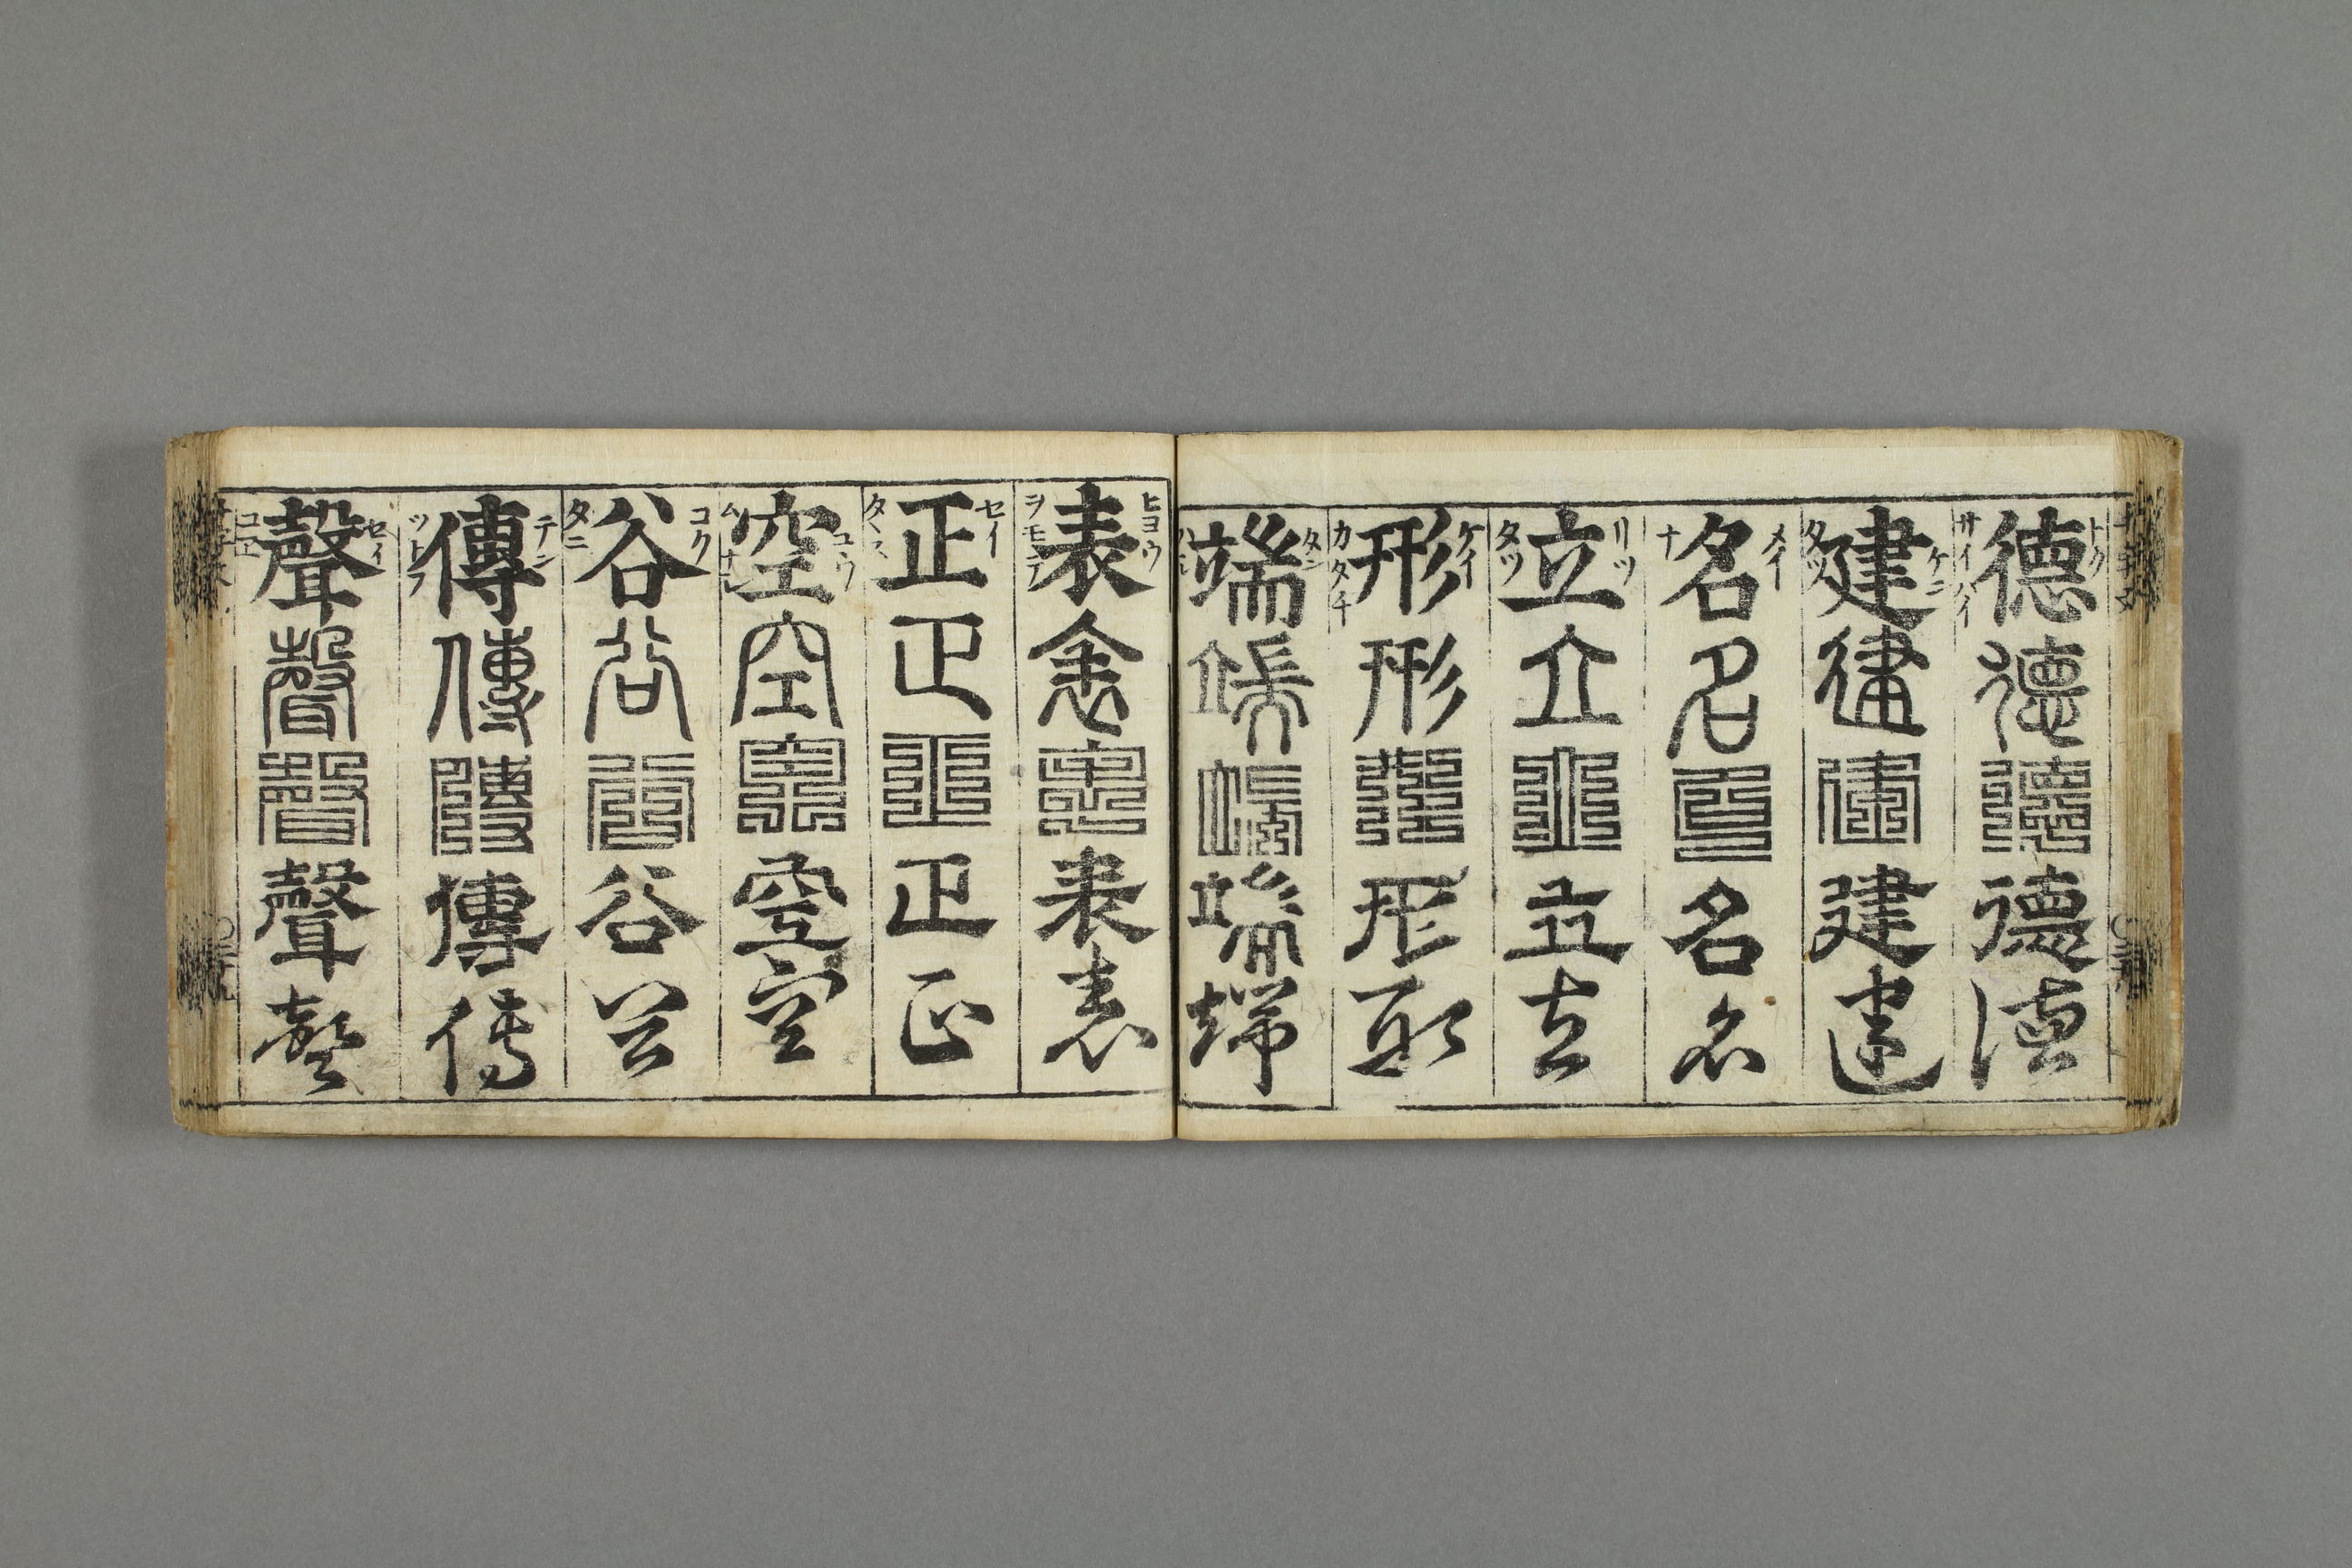 トク 德德德德德 サイハイ
ケン 建建建建建 タツ
メイ 名名名名名 ナ
リツ 立立立立立 タツ
ケイ 形形形形形 カタチ
タン 端端端端端
ヒヨウ 表表表表表 ヲモテ
セイ 正正正正正 タヽス
コウ 空空空空空
コク 谷谷谷谷谷 タニ
テン 傳傳傳傳傳 ツトフ
セイ 聲聲聲聲聲 コヱ